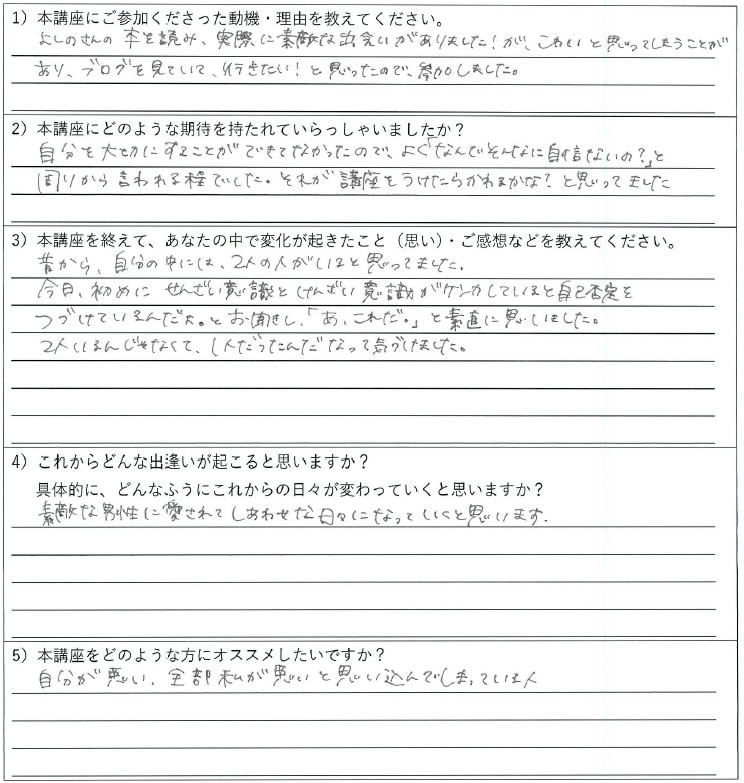 1）本講座にご参加くださった動機・理由を教えてください。
よしのさんの本を読み、実際に素敵な出会いがありました！が、こわいと思ってしまうことが
あり、ブログを見ていて、行きたい！と思ったので、参加しました。
2）本講座にどのような期待を持たれていらっしゃいましたか？
自分を大切にすることができてなかったので、よく「なんでそんなに自信ないの？」と
周りから言われる程でした。それが講座をうけたらかわるかな？と思ってました
3）本講座を終えて、あなたの中で変化が起きたこと（思い）・ご感想などを教えてください。
昔から、自分の中には、2人の人がいると思ってました。
今日、初めにせんざい意識とげんざい意識がケンカしていると自己否定を
つづけているんだよ。とお聞きし、「あ、これだ。」と素直に思いました。
2人いるんじゃなくて、1人だったんだなって気づけました。
4）これからどんな出逢いが起こると思いますか？
具体的に、どんなふうにこれからの日々が変わっていくと思いますか？
素敵な男性に愛されてしあわせな日々になっていくと思います.
5）本講座をどのような方にオススメしたいですか？
自分が悪い、全部私が悪いと思い込んでしまっている人